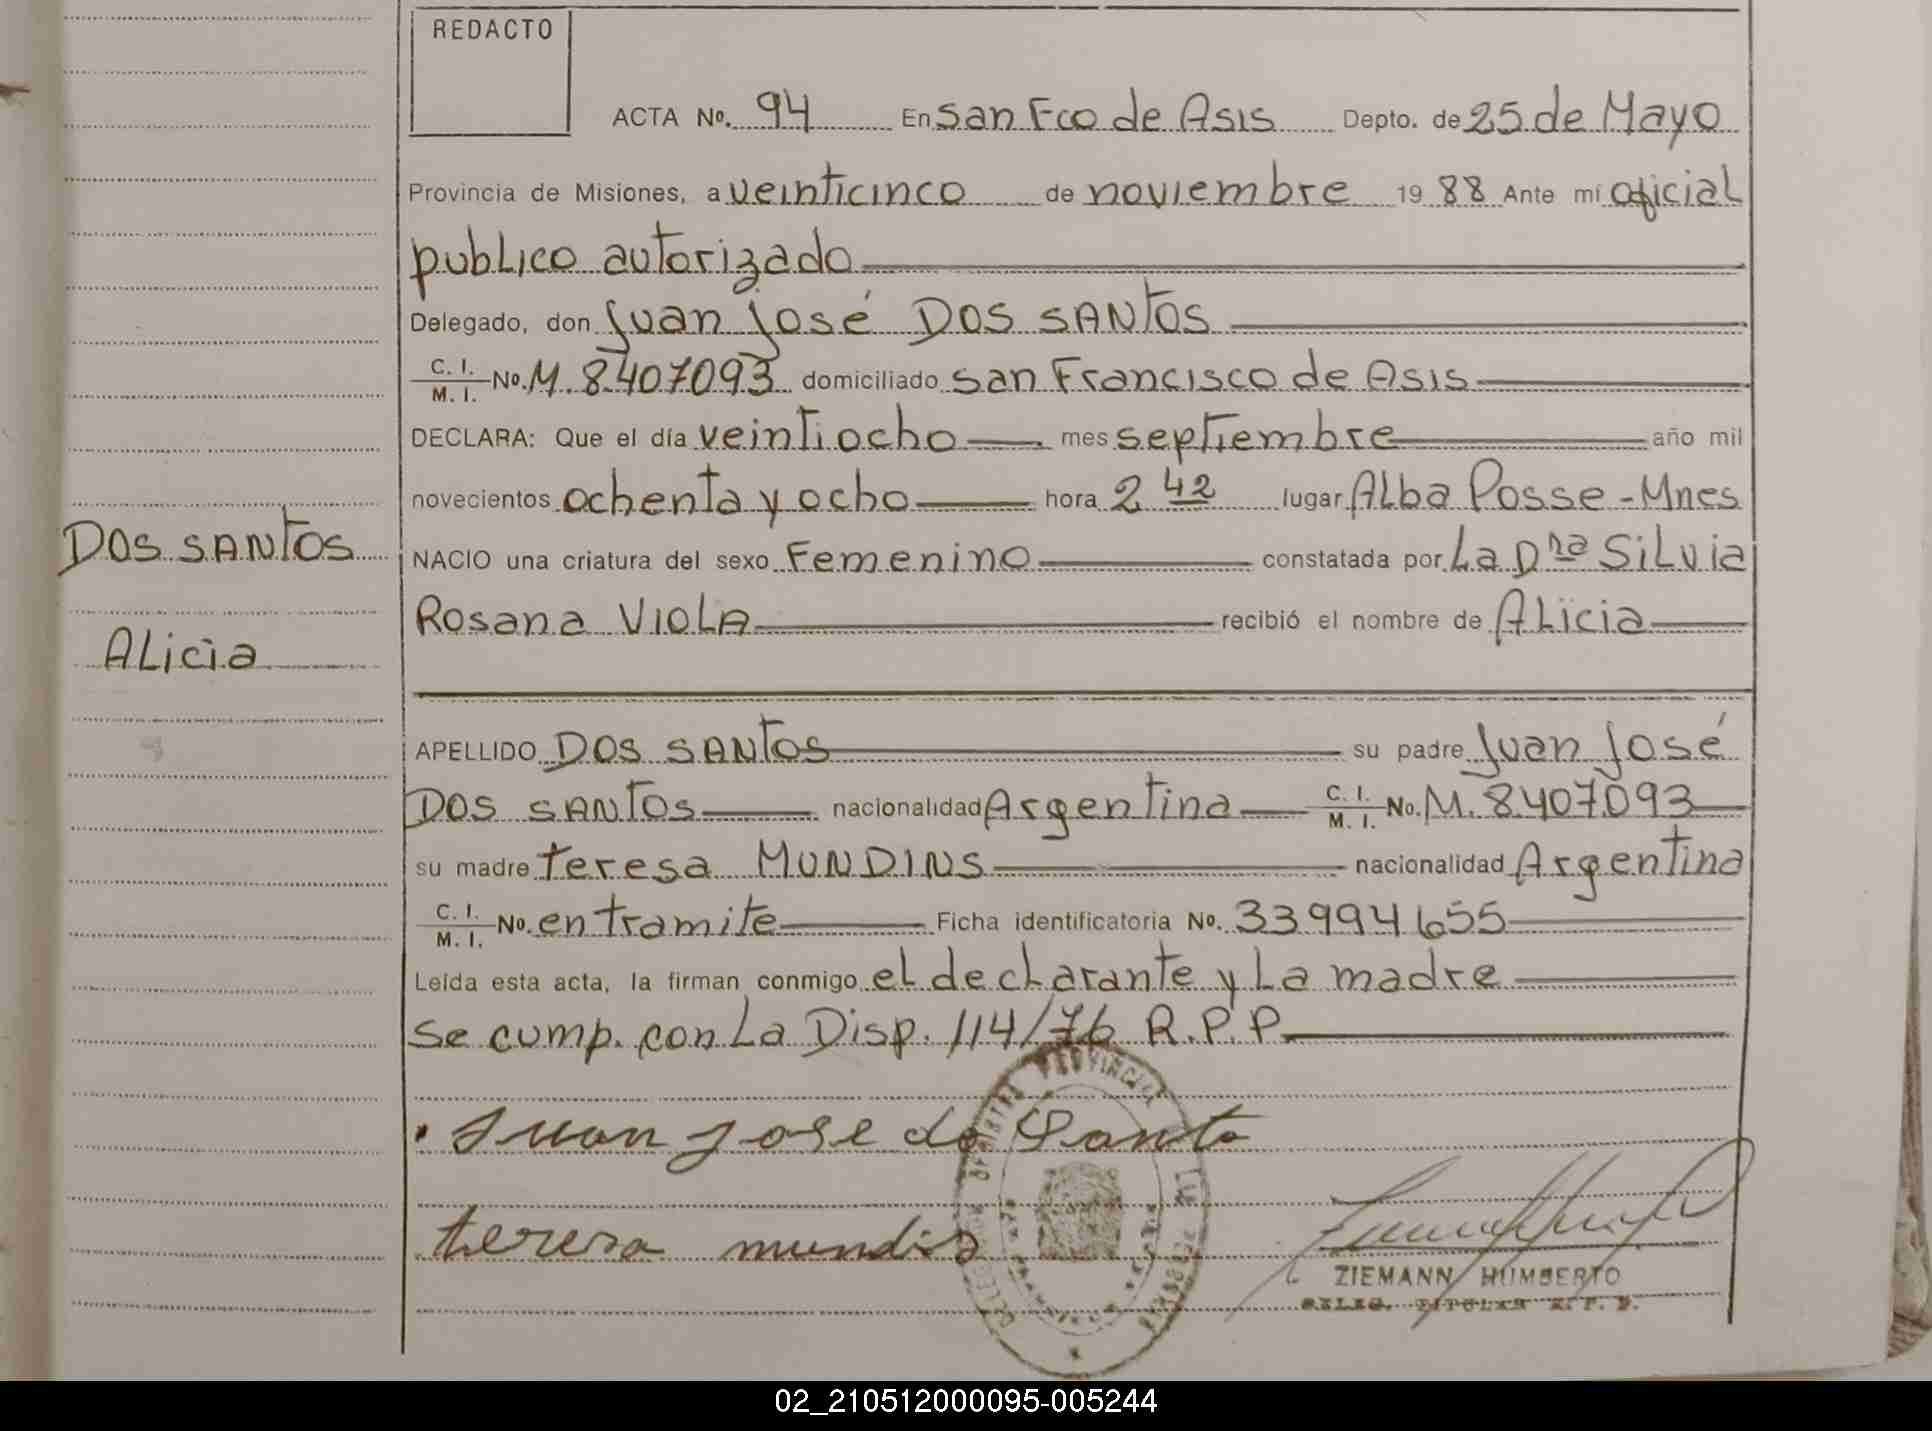 REDACTO
ACTA Nº. 94 En San Fco de Asis Depto. de 25 de Mayo
Provincia de Misiones, a veinticinco de noviembre 19 88 Ante mí oficial
publico autorizado
Delegado, don Juan José DOS SANTOS
C. I. / M. I. Nº. M. 8.407.093 domiciliado San Francisco de Asis
DECLARA: Que el día veintiocho mes septiembre año mil
novecientos ochenta y ocho hora 2 42 lugar Alba Posse - Mnes
DOS SANTOS
NACIO una criatura del sexo Femenino constatada por La Dra Silvia
Rosana VIOLA recibió el nombre de Alicia
Alicia
APELLIDO DOS SANTOS su padre Juan José
DOS SANTOS nacionalidad Argentina C. I. / M. I. No. M. 8.407.093
su madre teresa MUNDINS nacionalidad Argentina
C. I. / M. I. No. en tramite Ficha identificatoria Nº. 33994655
Leída esta acta, la firman conmigo el declarante y La madre
Se cump. con La Disp. 114/76 R.P.P.
Juan Jose do Santo
teresa mundis
REGISTRO PROVINCIAL DE LAS PERSONAS
ZIEMANN HUMBERTO
DELEG. TITULAR R. P. P.
02_210512000095-005244